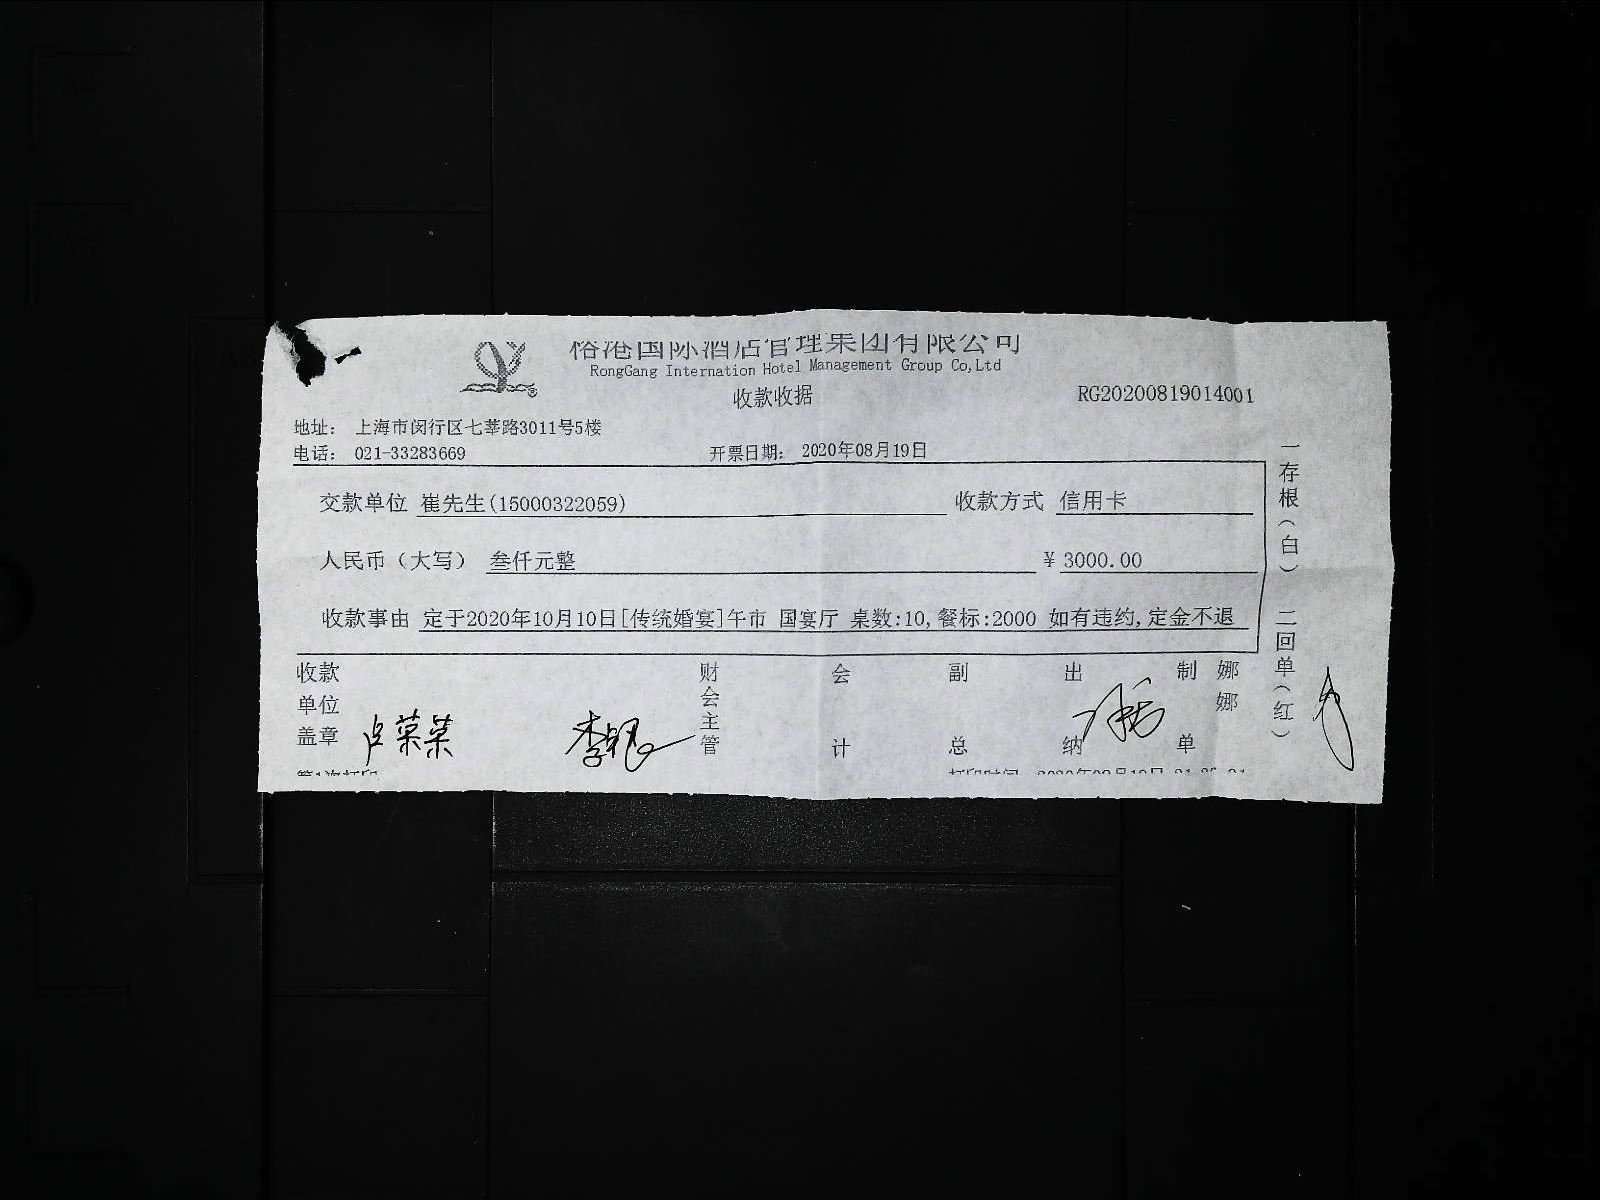 国际酒店管理集团有限公司
RongGang Internation Hotel Management Group Co,Ltd
收款收据
RG20200819014001
地址： 上海市闵行区七莘路3011号5楼
电话： 021-33283669
开票日期： 2020年08月19日
交款单位 崔先生(15000322059)
收款方式 信用卡
人民币（大写） 叁仟元整
¥ 3000.00
收款事由 定于2020年10月10日[传统婚宴]午市 国宴厅 桌数:10,餐标:2000 如有违约,定金不退
一存根（白） 二回单（红）
收款单位盖章
财会主管
会计
副总
出纳
制单
娜娜